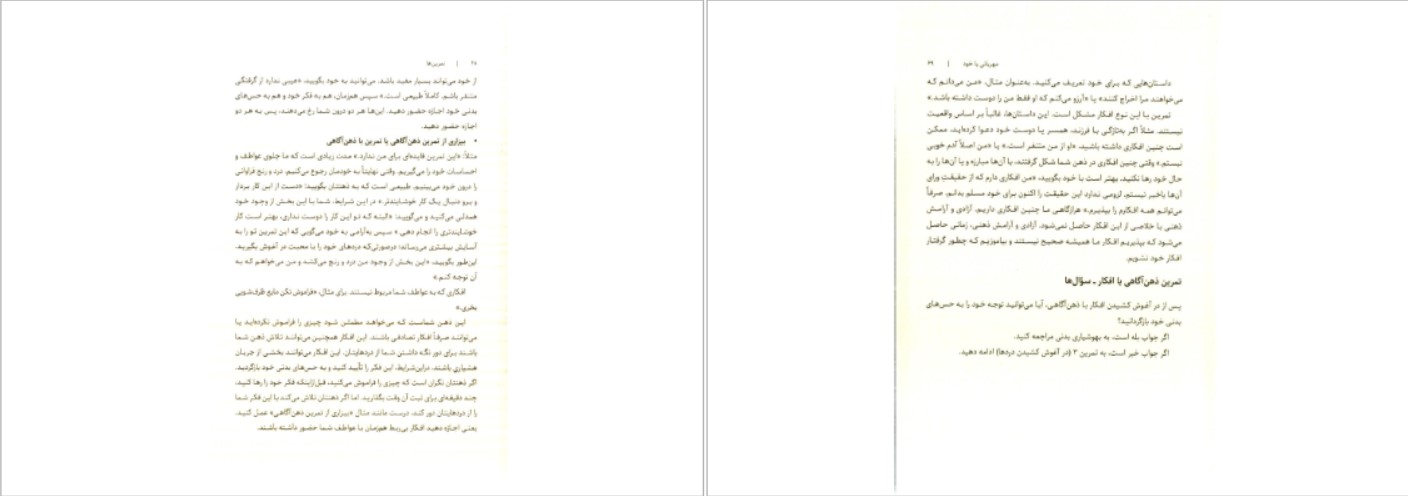 ۲۸ | تمرین‌ها
از خود می‌تواند بسیار مفید باشد. می‌توانید به خود بگویید، «عیبی ندارد از گرفتگی
متنفر باشم. کاملاً طبیعی است.» سپس هم‌زمان، هم به فکر خود و هم به حس‌های
بدنی خود اجازه حضور دهید. این‌ها هر دو درون شما رخ می‌دهند، پس به هر دو
اجازه حضور دهید.
• بیزاری از تمرین ذهن‌آگاهی یا تمرین با ذهن‌آگاهی
مثلاً: «این تمرین فایده‌ای برای من ندارد.» مدت زیادی است که ما جلوی عواطف و
احساسات خود را می‌گیریم. وقتی نهایتاً به خودمان رجوع می‌کنیم، درد و رنج فراوانی
را درون خود می‌بینیم. طبیعی است که به ذهنتان بگویید: «دست از این کار بردار
و برو دنبال یک کار خوشایندتر.» در این شرایط، شما با این بخش از وجود خود
همدلی می‌کنید و می‌گویید: «البته که تو این کار را دوست نداری، بهتر است کار
خوشایندتری را انجام دهی.» سپس به‌آرامی به خود می‌گویی که این تمرین تو را به
آسایش بیشتری می‌رساند؛ درصورتی‌که دردهای خود را با محبت در آغوش بگیرید.
این‌طور بگویید، «این بخش از وجود من درد و رنج می‌کشد و من می‌خواهم که به
آن توجه کنم.»
افکاری که به عواطف شما مربوط نیستند. برای مثال، «فراموش نکن مایع ظرف‌شویی
بخری.»
این ذهن شماست که می‌خواهد مطمئن شود چیزی را فراموش نکرده‌اید یا
می‌توانند صرفاً افکار تصادفی باشند. این افکار همچنین می‌توانند تلاش ذهن شما
باشند برای دور نگه داشتن شما از دردهایتان. این افکار می‌توانند بخشی از جریان
هشیاری باشند. دراین‌شرایط، این فکر را تأیید کنید و به حس‌های بدنی خود بازگردید.
اگر ذهنتان نگران است که چیزی را فراموش می‌کنید، قبل‌ازاینکه فکر خود را رها کنید،
چند دقیقه‌ای برای ثبت آن وقت بگذارید. اما اگر ذهنتان تلاش می‌کند با این فکر شما
را از دردهایتان دور کند، درست مانند مثال «بیزاری از تمرین ذهن‌آگاهی» عمل کنید.
یعنی اجازه دهید افکار بی‌ربط هم‌زمان با عواطف شما حضور داشته باشند.
مهربانی با خود | ۲۹
داستان‌هایی که برای خود تعریف می‌کنید. به‌عنوان مثال، «من می‌دانم که
می‌خواهند مرا اخراج کنند» یا «آرزو می‌کنم که او فقط من را دوست داشته باشد.»
تمرین با این نوع افکار مشکل است. این داستان‌ها، غالباً بر اساس واقعیت
نیستند. مثلاً اگر به‌تازگی با فرزند، همسر یا دوست خود دعوا کرده‌اید، ممکن
است چنین افکاری داشته باشید، «او از من متنفر است.» یا «من اصلاً آدم خوبی
نیستم.» وقتی چنین افکاری در ذهن شما شکل گرفتند، با آن‌ها مبارزه و یا آن‌ها را به
حال خود رها نکنید. بهتر است با خود بگویید، «من افکاری دارم که از حقیقت ورای
آن‌ها باخبر نیستم. لزومی ندارد این حقیقت را اکنون برای خود مسلم بدانم. صرفاً
می‌توانم همه افکارم را بپذیرم.» هرازگاهی ما چنین افکاری داریم. آزادی و آرامش
ذهنی با خلاصی از این افکار حاصل نمی‌شود. آزادی و آرامش ذهنی، زمانی حاصل
می‌شود که بپذیریم افکار ما همیشه صحیح نیستند و بیاموزیم که چطور گرفتار
افکار خود نشویم.
تمرین ذهن‌آگاهی با افکار ـ سؤال‌ها
پس از در آغوش کشیدن افکار با ذهن‌آگاهی، آیا می‌توانید توجه خود را به حس‌های
بدنی خود بازگردانید؟
اگر جواب بله است، به بهوشیاری بدنی مراجعه کنید.
اگر جواب خیر است، به تمرین ۳ (در آغوش کشیدن دردها) ادامه دهید.